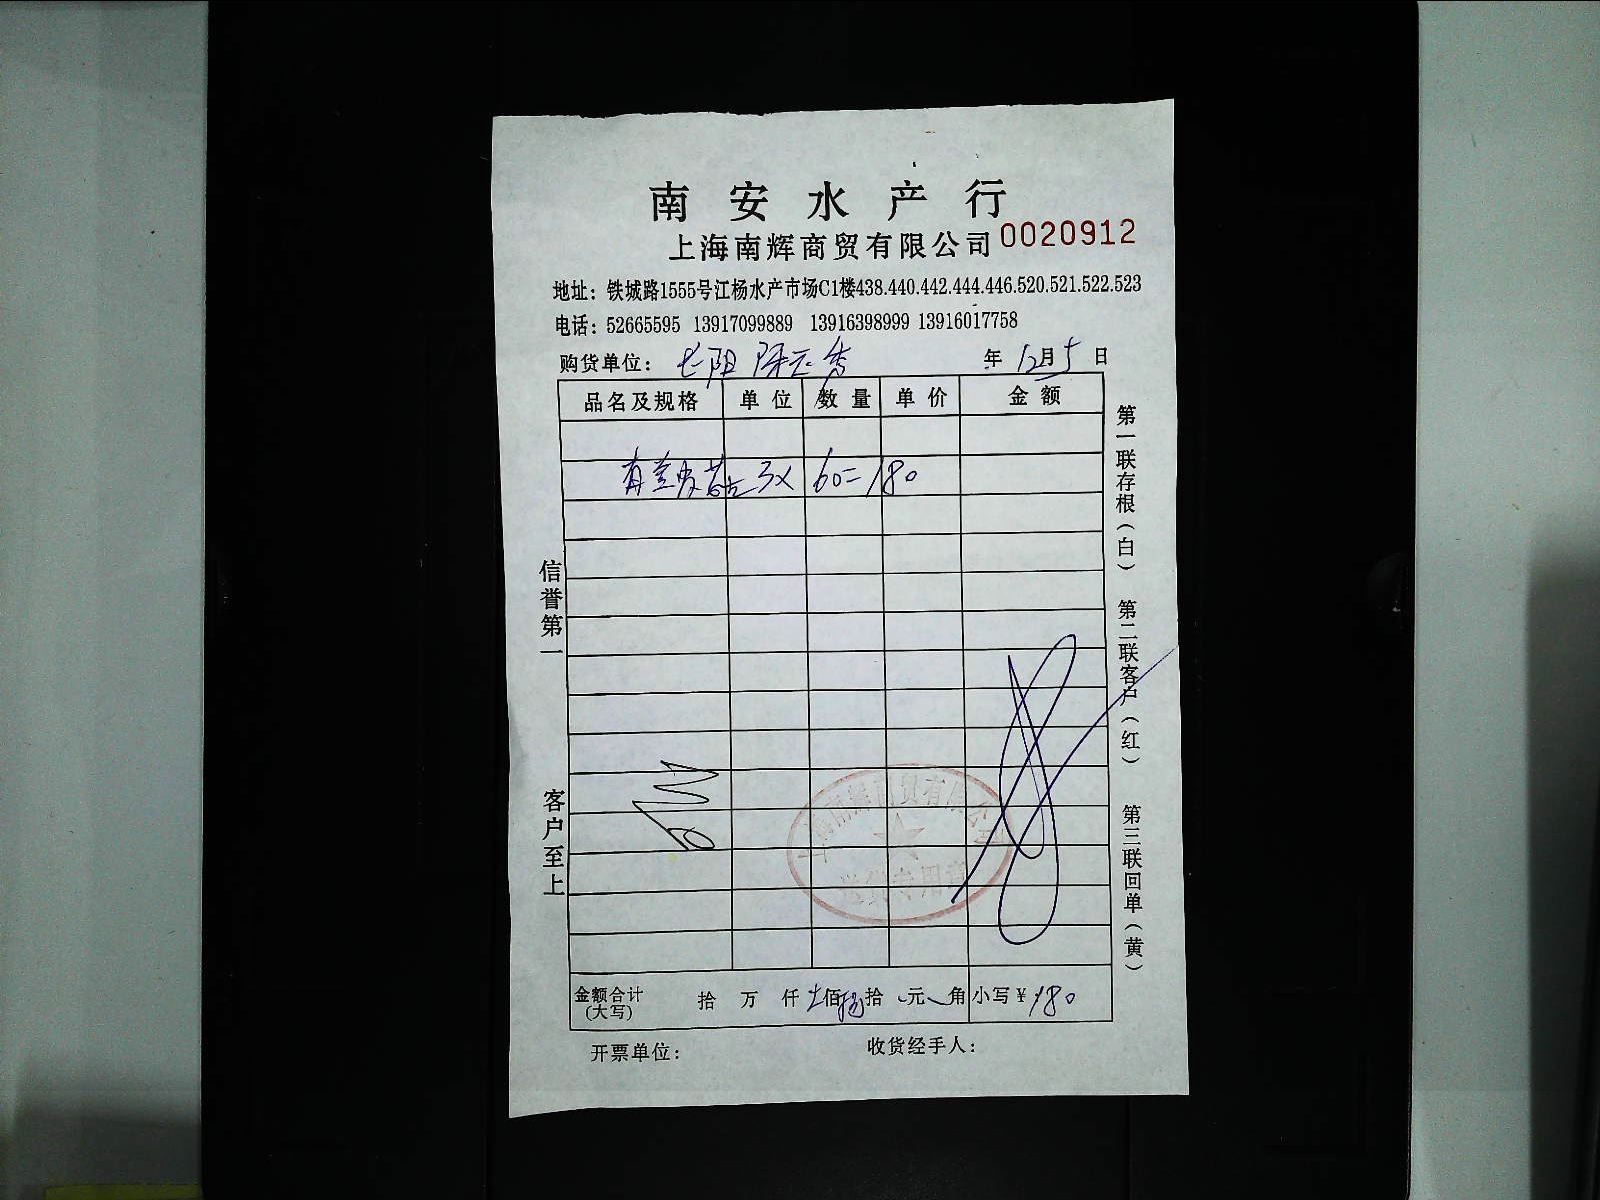 南安水产行
上海南辉商贸有限公司 0020912
地址：铁城路1555号江杨水产市场C1楼438.440.442.444.446.520.521.522.523
电话：52665595 13917099889 13916398999 13916017758
购货单位： 年 12月5日
品名及规格 单位 数量 单价 金额
3× 60=180
信誉第一
客户至上
第一联存根（白）
第二联客户（红）
第三联回单（黄）
上海南辉商贸有限公司
金额合计(大写) 拾 万 仟 佰 拾 元 角 小写¥180
开票单位： 收货经手人：